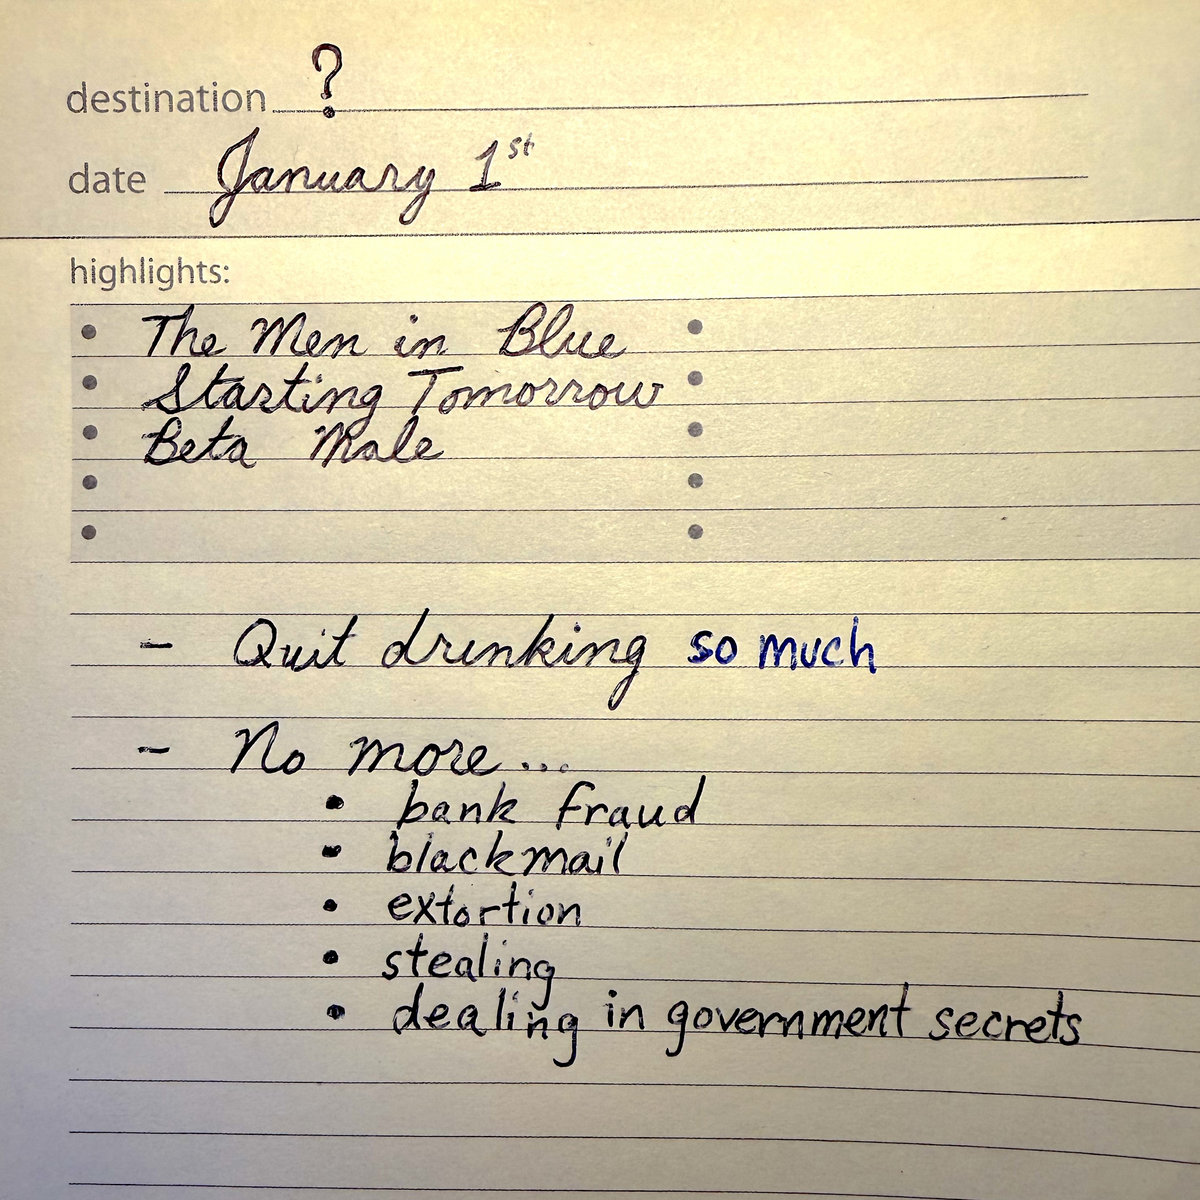 destination ?
date January 1st
highlights:
• The Men in Blue
• Starting Tomorrow
• Beta Male
- Quit drinking so much
- No more...
• bank fraud
• blackmail
• extortion
• stealing
• dealing in government secrets